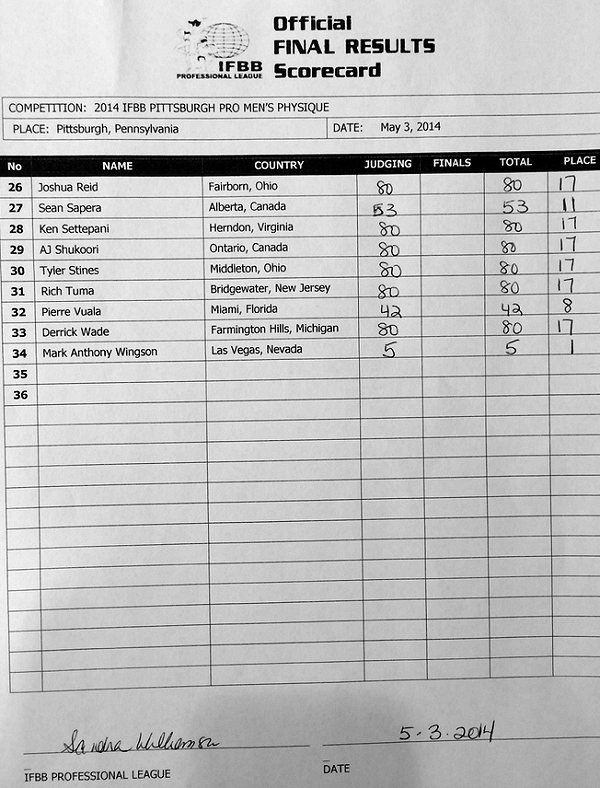 Official
FINAL RESULTS
Scorecard
IFBB
PROFESSIONAL LEAGUE
COMPETITION: 2014 IFBB PITTSBURGH PRO MEN'S PHYSIQUE
PLACE: Pittsburgh, Pennsylvania DATE: May 3, 2014
No NAME COUNTRY JUDGING FINALS TOTAL PLACE
26 Joshua Reid Fairborn, Ohio 80 80 17
27 Sean Sapera Alberta, Canada 53 53 11
28 Ken Settepani Herndon, Virginia 80 80 17
29 AJ Shukoori Ontario, Canada 80 80 17
30 Tyler Stines Middleton, Ohio 80 80 17
31 Rich Tuma Bridgewater, New Jersey 80 80 17
32 Pierre Vuala Miami, Florida 42 42 8
33 Derrick Wade Farmington Hills, Michigan 80 80 17
34 Mark Anthony Wingson Las Vegas, Nevada 5 5 1
35
36
Sandra Williamson 5-3-2014
IFBB PROFESSIONAL LEAGUE DATE